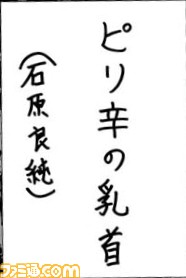 ピリ辛の乳首
（石原良純）
ファミ通.com